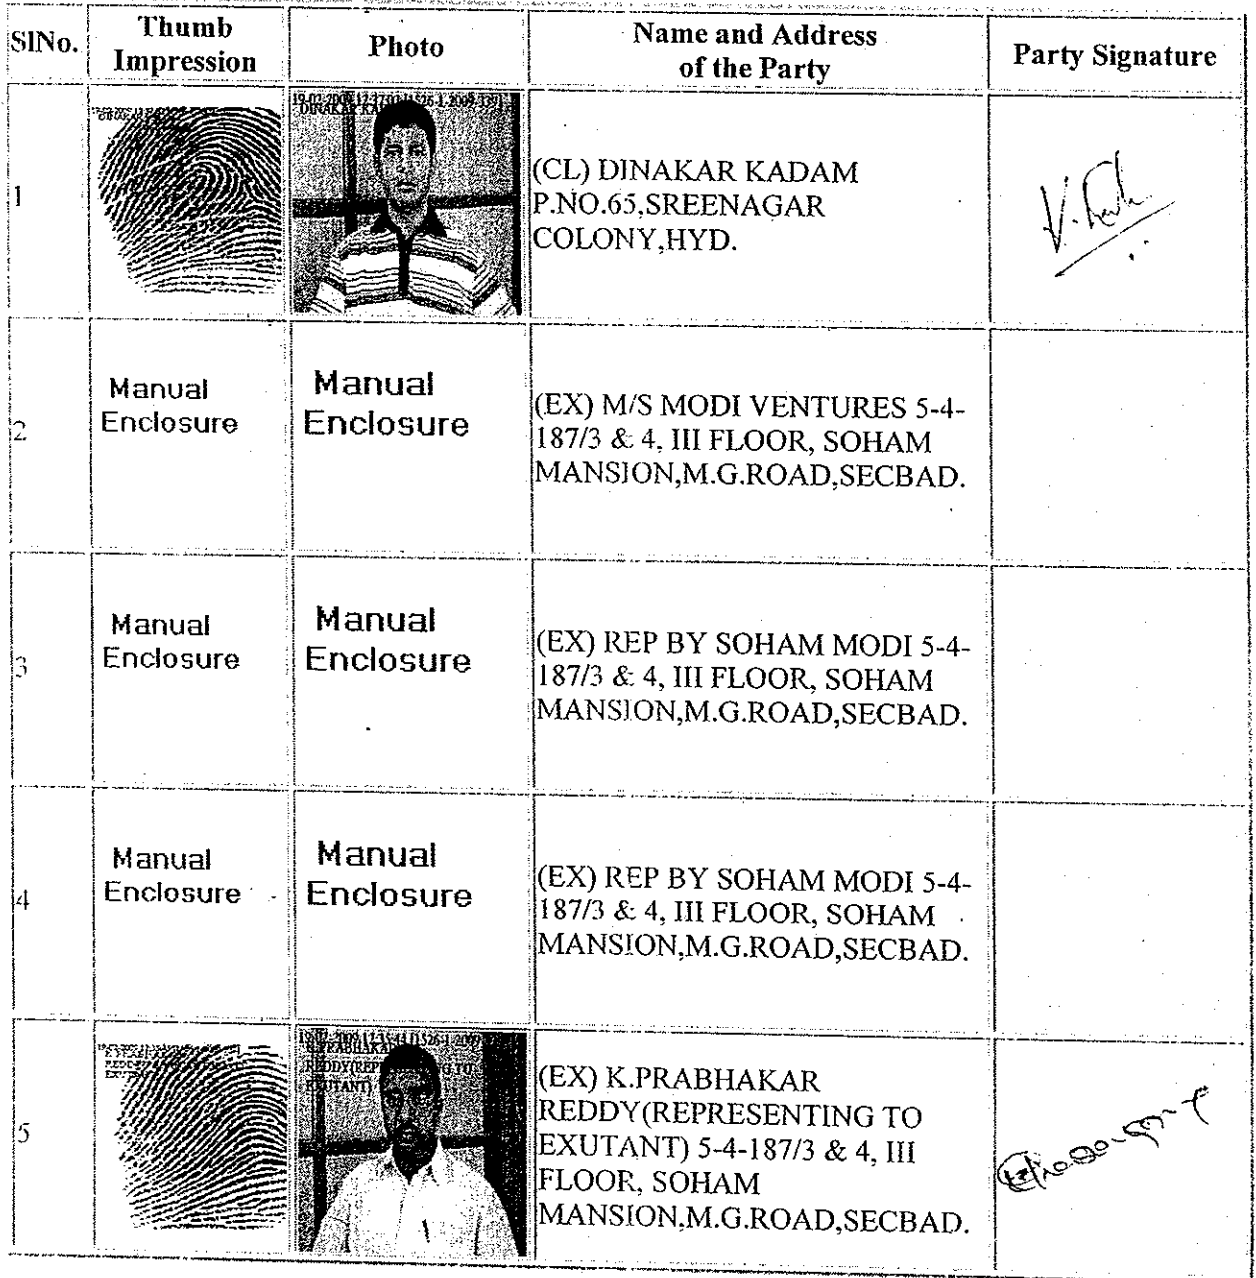 SlNo.
Thumb
Impression
Photo
Name and Address
of the Party
Party Signature
1
DINAKAR KADAM
(CL) DINAKAR KADAM
P.NO.65,SREENAGAR
COLONY,HYD.
2
Manual
Enclosure
Manual
Enclosure
(EX) M/S MODI VENTURES 5-4-
187/3 & 4, III FLOOR, SOHAM
MANSION,M.G.ROAD,SECBAD.
3
Manual
Enclosure
Manual
Enclosure
(EX) REP BY SOHAM MODI 5-4-
187/3 & 4, III FLOOR, SOHAM
MANSION,M.G.ROAD,SECBAD.
4
Manual
Enclosure
Manual
Enclosure
(EX) REP BY SOHAM MODI 5-4-
187/3 & 4, III FLOOR, SOHAM
MANSION,M.G.ROAD,SECBAD.
5
(EX) K.PRABHAKAR
REDDY(REPRESENTING TO
EXUTANT) 5-4-187/3 & 4, III
FLOOR, SOHAM
MANSION,M.G.ROAD,SECBAD.